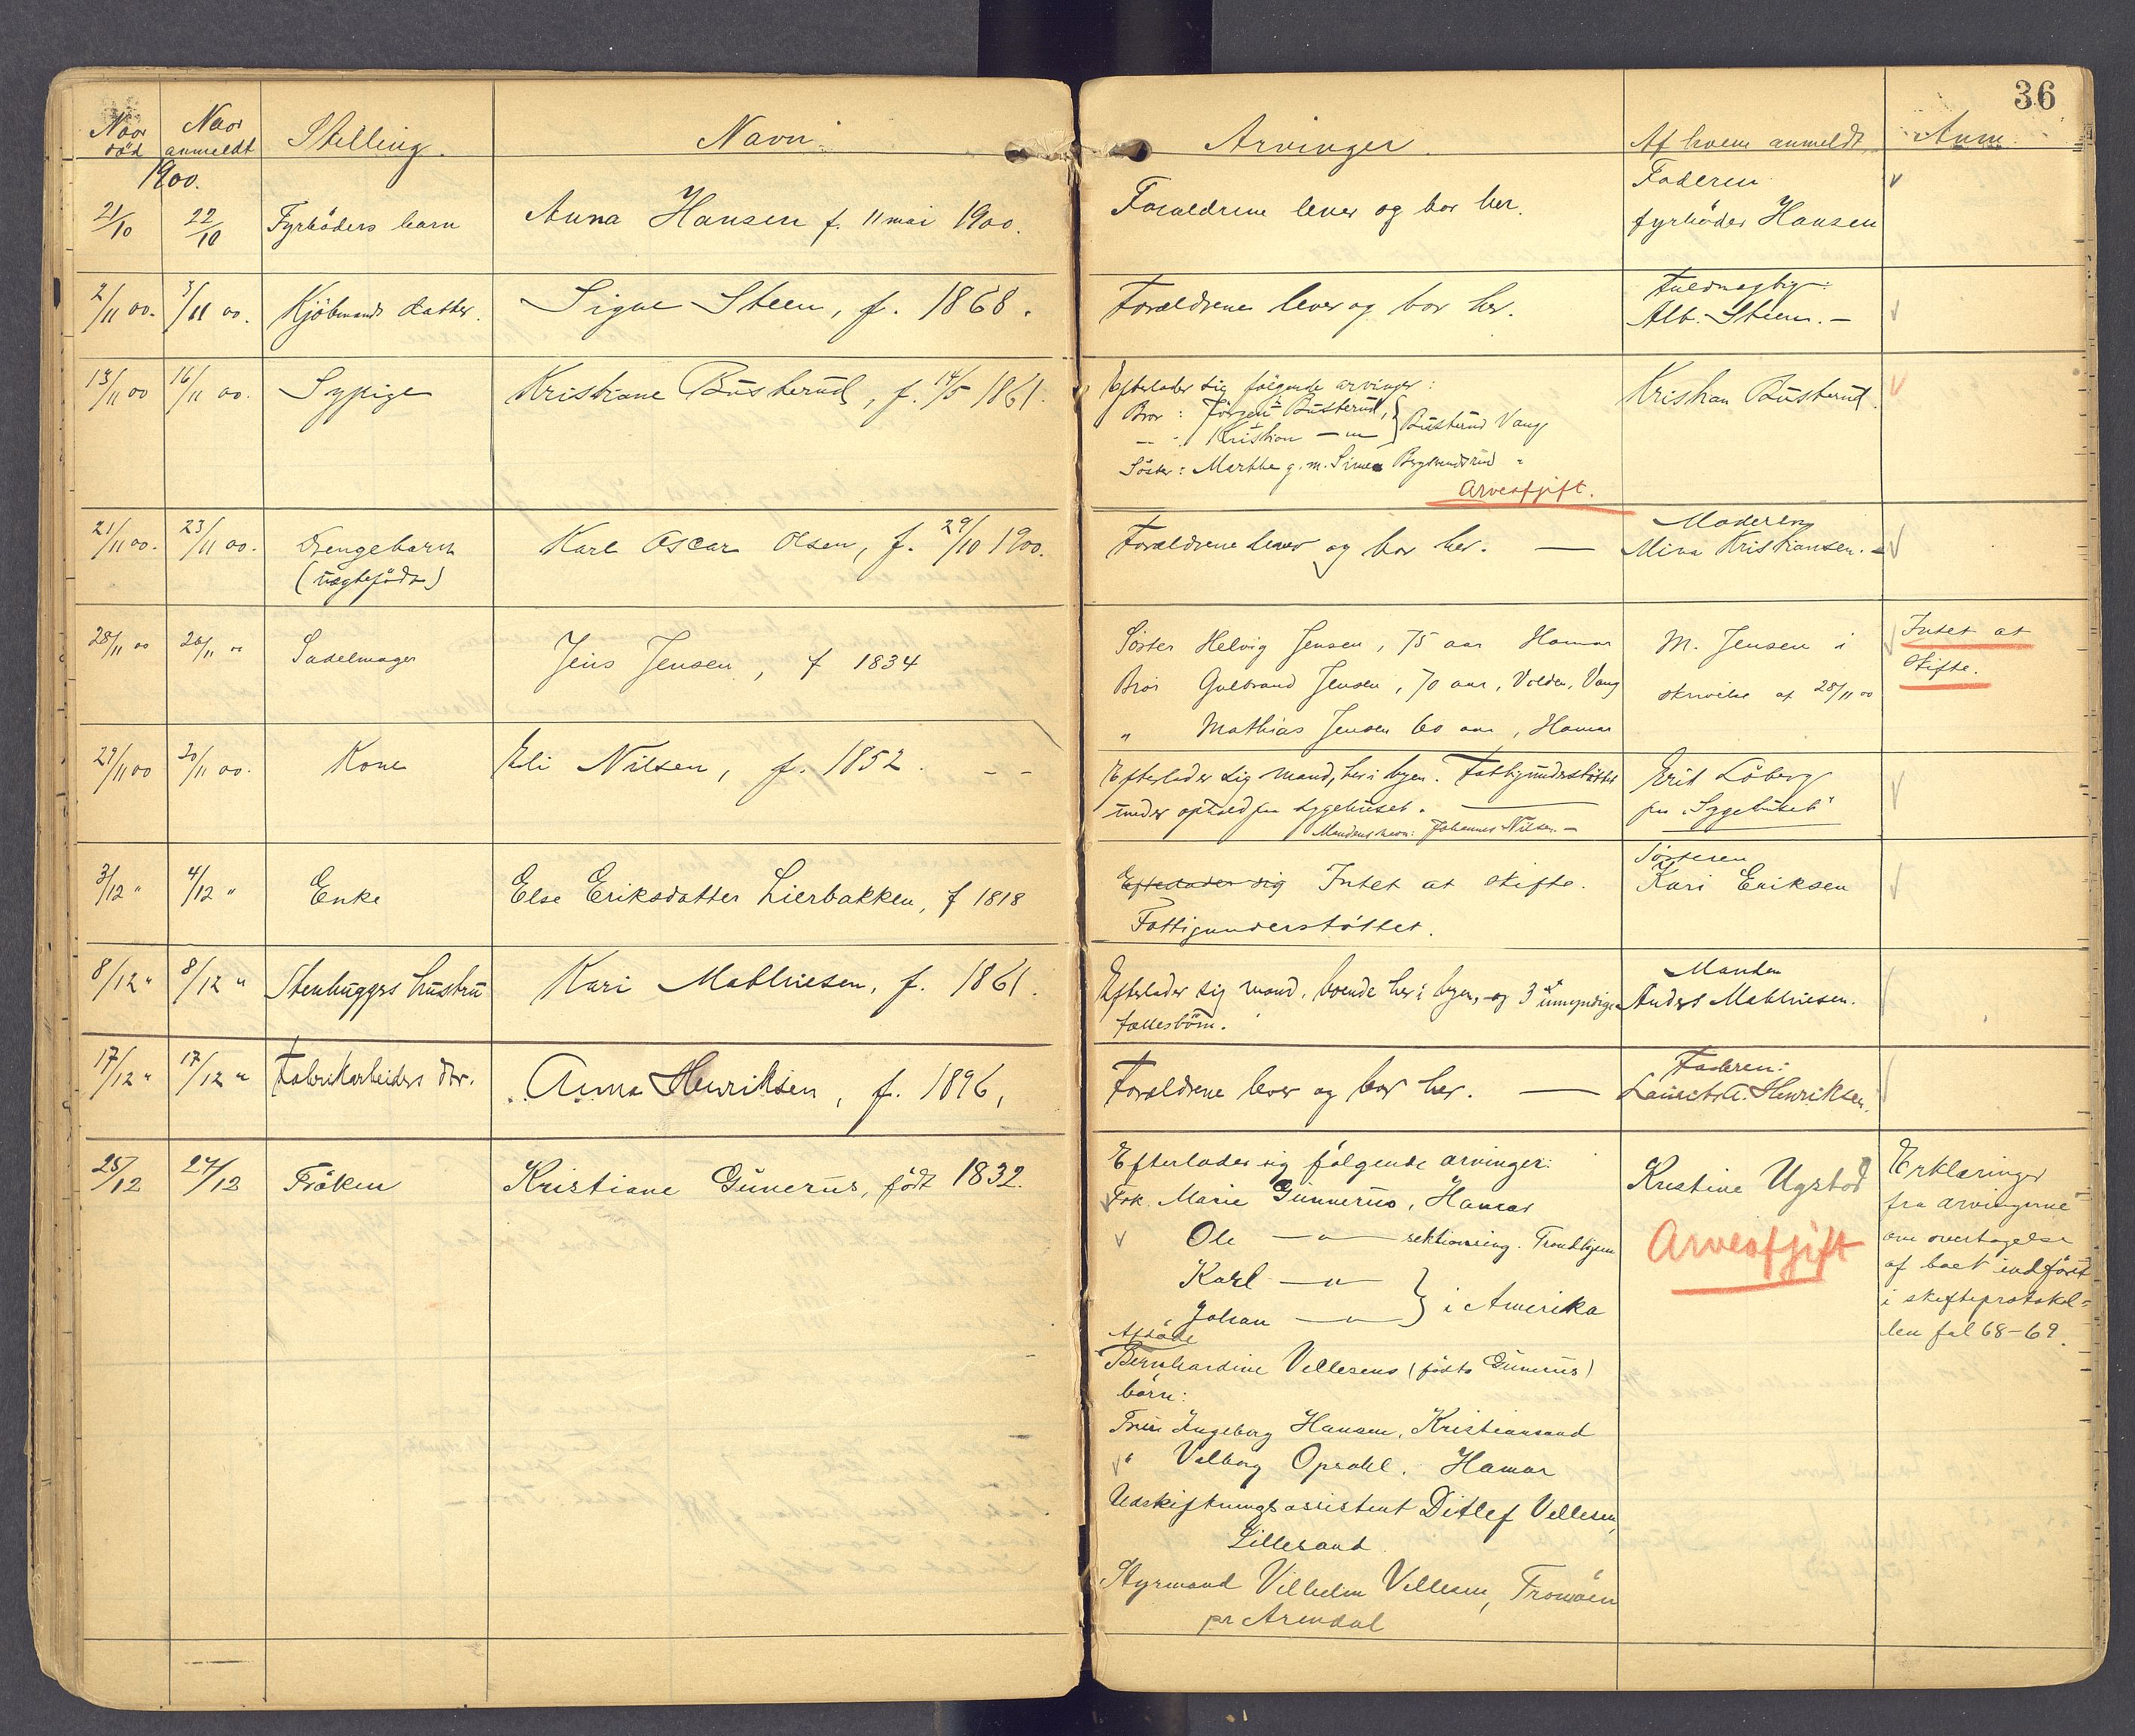 36
Naar død
Naar anmeldt
Stilling.
Navn.
Arvinger.
Af hvem anmeldt
Anm.
1900.
21/10
22/10
Fyrbøders barn
Anna Hansen f. 11 mai 1900.
Forældrene lever og bor her.
Faderen
fyrbøder Hansen
2/11 00.
3/11 00.
Kjøbmands datter.
Signe Steen, f. 1868.
Forældrene lever og bor her.
Fuldmægtig
Alb. Steen. —
13/11 00
16/11 00.
Sypige
Kristiane Busterud, f. 14/5 1861.
Efterlader sig følgende arvinger:
Bror: Jørgen Busterud,
— " Kristian — " — } Busterud Vang
Søster: Marthe g. m. Simen
Arveafgift.
Kristian Busterud.
21/11 00.
23/11 00.
Drengebarn
(uægtefødt)
Karl Oscar Olsen, f. 29/10 1900.
Forældrene lever og bor her. —
Moderen
Mina Kristiansen. —
28/11 00
28/11 00
Sadelmager
Jens Jensen, f 1834
Søster Helvig Jensen, 75 aar Hamar
Bror Gulbrand Jensen, 70 aar, Volden, Vang
" Mathias Jensen 60 aar, Hamar
M. Jensen i
skrivelse af 28/11 00
Intet at
skifte.
29/11 00
30/11 00.
Kone
Eli Nilsen, f. 1852. - -
Efterlader sig mand, her i byen. Fattigunderstøttet
under ophold paa sygehuset. —
Mandens navn: Johannes Nilsen. —
Erik Løberg
paa "Sygehuset"
3/12 "
4/12 "
Enke
Else Eriksdatter Lierbakken, f 1818
Efterlader sig Intet at skifte.
Fattigunderstøttet.
Søsteren
Kari Eriksen
8/12 "
8/12 "
Stenhuggers hustru
Kari Mathiesen, f. 1861.
Efterlader sig mand, boende her i byen, og 3 umyndige
fællesbørn.
Manden
Anders Mathiesen.
17/12 "
17/12 "
Fabrikarbeiders dtr.
Anna Henriksen, f. 1896,
Forældrene lever og bor her. —
Faderen:
Lauritz A. Henriksen.
25/12
27/12
Frøken
Kristiane Gunerus, født 1832.
Efterlader sig følgende arvinger:
Frk. Marie Gunnerus, Hamar
Ole — " — sektionsing. Trondhjem
Karl — " —
Johan — " — } i Amerika
Afdøde
Bernhardine Vellesens (født Gunerus)
børn:
Fru Ingeborg Hansen, Kristiansand
" Valborg Opsahl. Hamar
Udskiftningsassistent Ditlef Vellesen,
Lillesand.
Styrmand Vilhelm Vellesen, Tromøen
pr Arendal
Kristine Ugstad
Arveafgift
Erklæringer
fra arvingerne
om overtagelse
af boet indført
i skifteprotokol=
len fol 68-69.